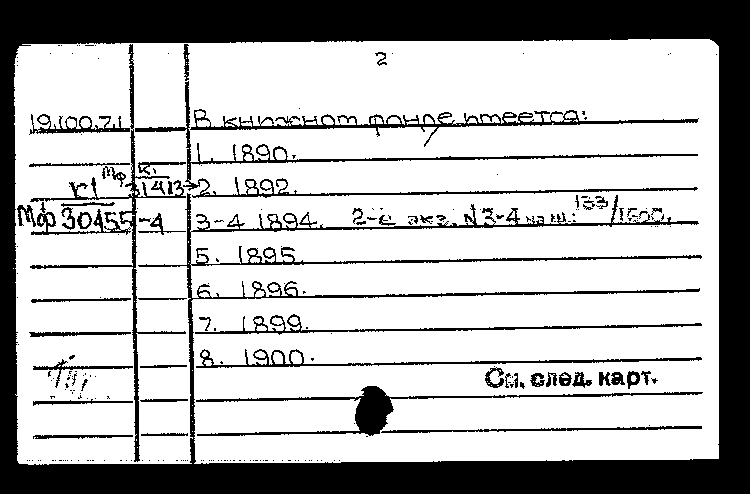 2
19.100.7.1 В книжном фонде имеется:
1. 1890.
к1 Мф К1 31413→2. 1892.
Мф 30455-4 3-4 1894. 2-е экз. N3-4 на ш.: 133/1600.
5. 1895.
6. 1896.
7. 1899.
8. 1900.
См. след. карт.